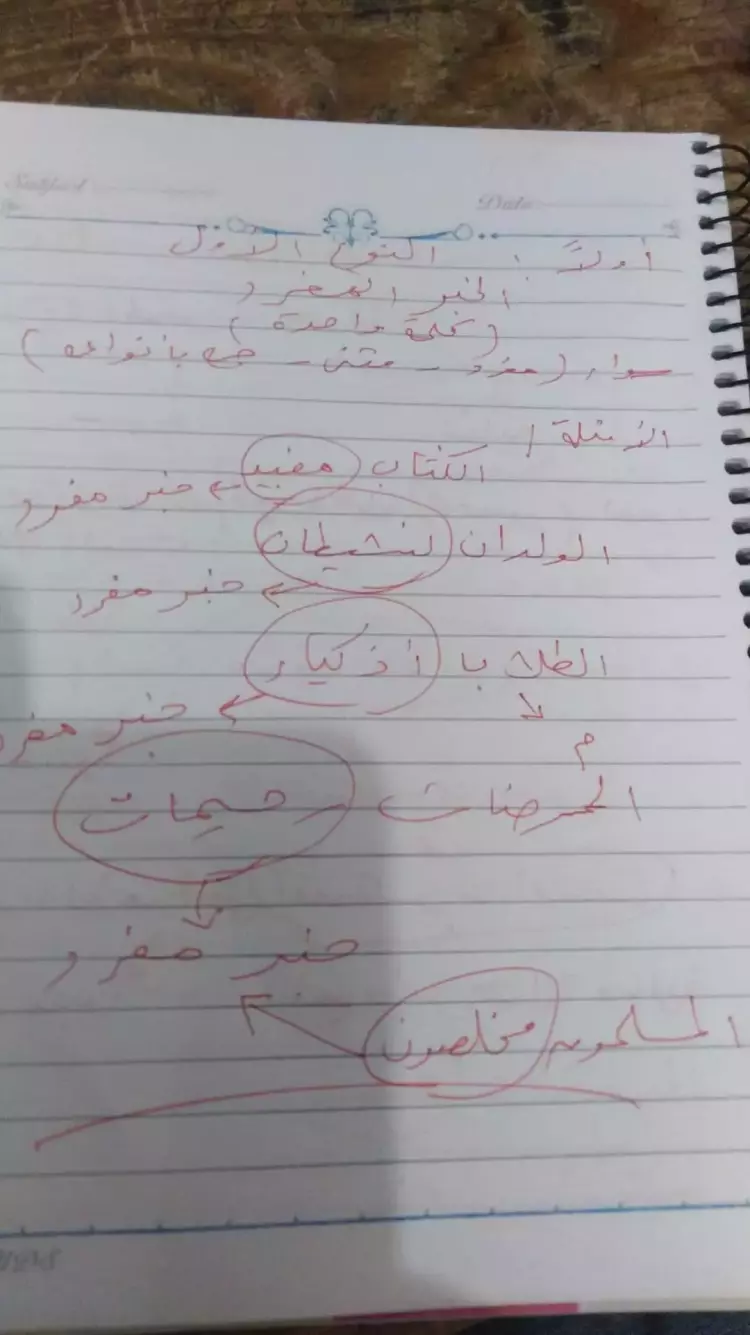 Subject
Date
أولاً : النوع الأول
الخبر المفرد
(كلمة واحدة)
سواء (مفرد - مثنى - جمع بأنواعه)
الأمثلة /
الكتاب مفيد ← خبر مفرد
الولدان نشيطان
← خبر مفرد
الطلاب أذكياء
← خبر مفرد
م
الممرضات رحيمات
خبر مفرد
المسلمون مخلصون